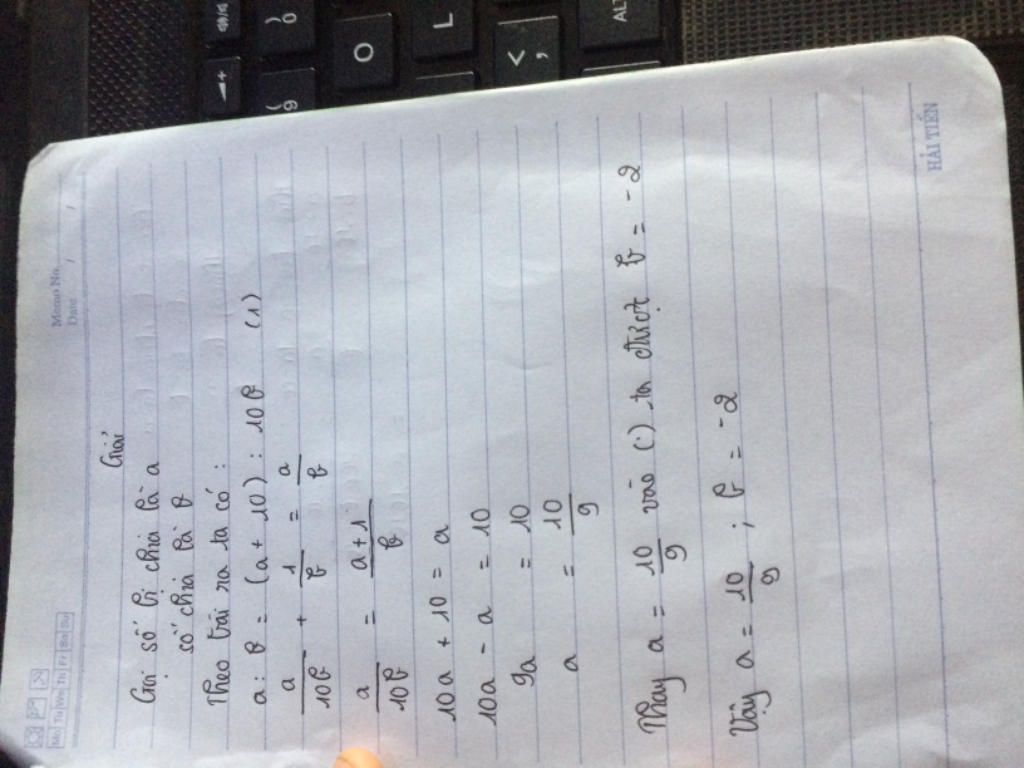 Memo No.
Date / /
Mo Tu We Th Fr Sa Su
Giải
Gọi số bị chia là a
số chia là b
Theo bài ra ta có :
a : b = (a + 10) : 10b (1)
a/10b + 1/b = a/b
a/10b = a+1/b
10a + 10 = a
10a - a = 10
9a = 10
a = 10/9
Thay a = 10/9 vào (1) ta được b = -2
Vậy a = 10/9 ; b = -2
HẢI TIẾN
O
L
ALT
<
,
)
0
(
9
+